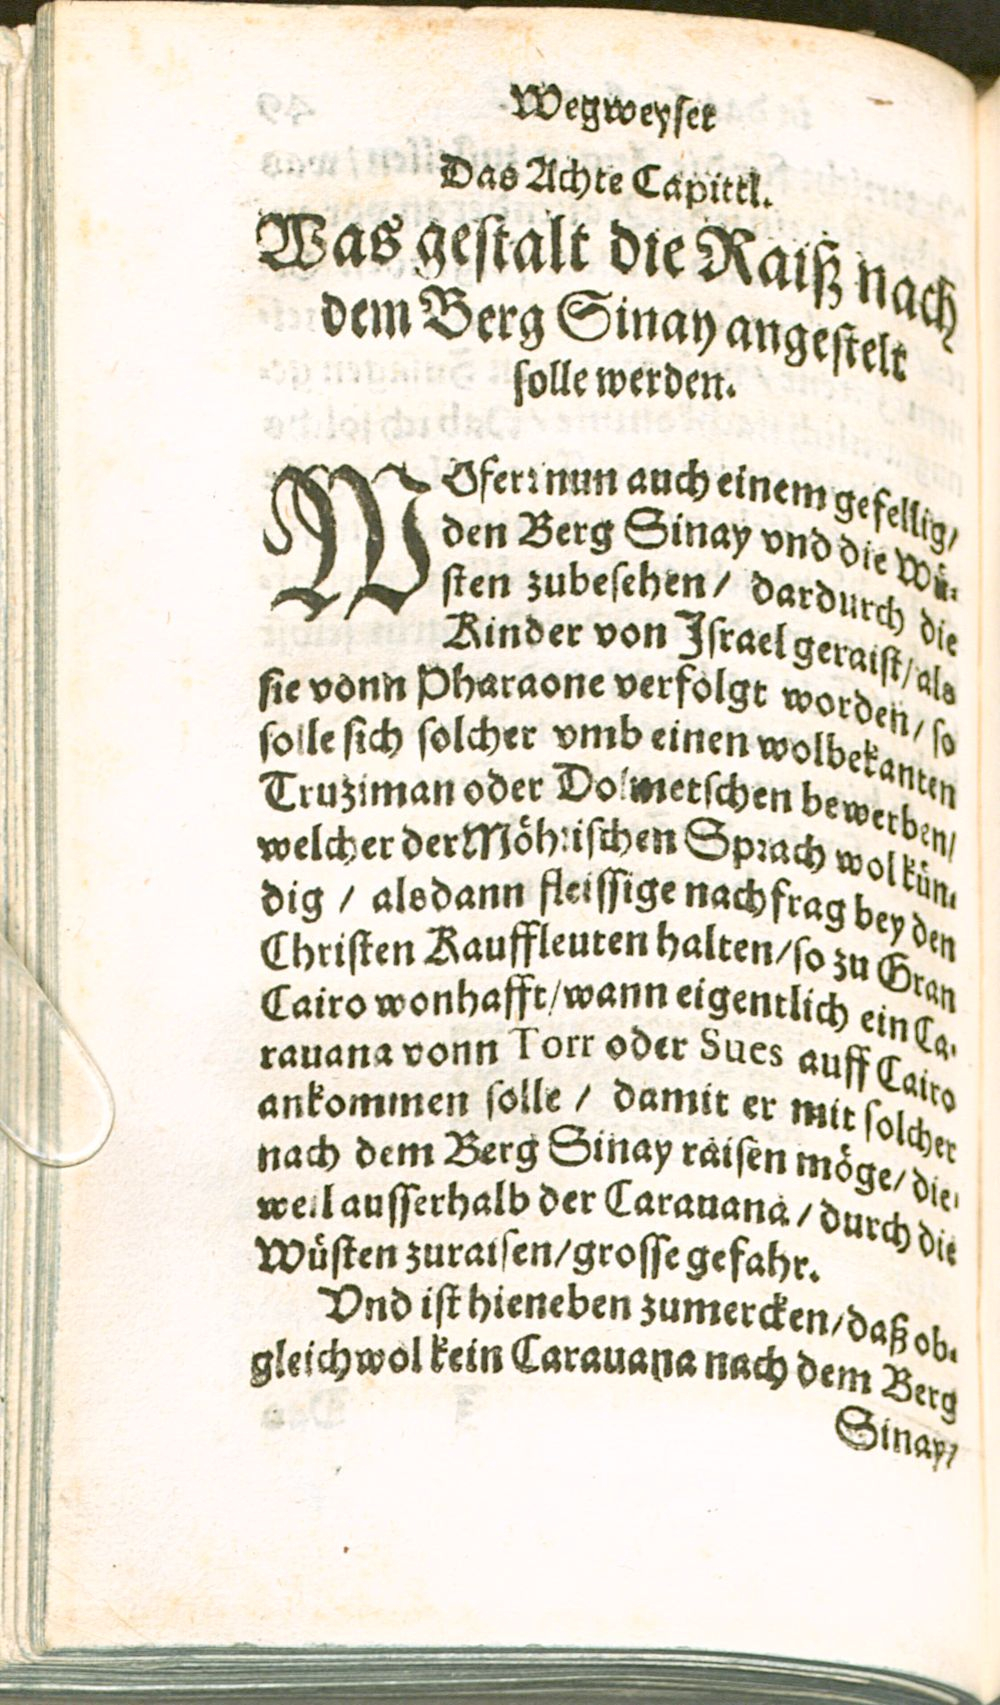 Wegweyſer
Das Achte Capittl.
Was geſtalt die Raiß nach
dem Berg Sinay angeſtelt
ſolle werden.
WOfern nun auch einem gefellig/
den Berg Sinay vnd die Wü⸗
ſten zubeſehen/ dardurch die
Kinder von Iſrael geraiſt/ als
ſie vonn Pharaone verfolgt worden/ ſo
ſolle ſich ſolcher vmb einen wolbekanten
Truziman oder Dolmetſchen bewerben/
welcher der Möhriſchen Sprach wol kün⸗
dig / alsdann fleiſſige nachfrag bey den
Chriſten Kauffleuten halten/ ſo zu Gran
Cairo wonhafft/ wann eigentlich ein Ca⸗
rauana vonn Torr oder Sues auff Cairo
ankommen ſolle / damit er mit ſolcher
nach dem Berg Sinay raiſen möge/ die⸗
weil auſſerhalb der Carauana / durch die
Wüſten zuraiſen/ groſſe gefahr.
Vnd iſt hieneben zumercken/ daß ob⸗
gleichwol kein Carauana nach dem Berg
Sinay/